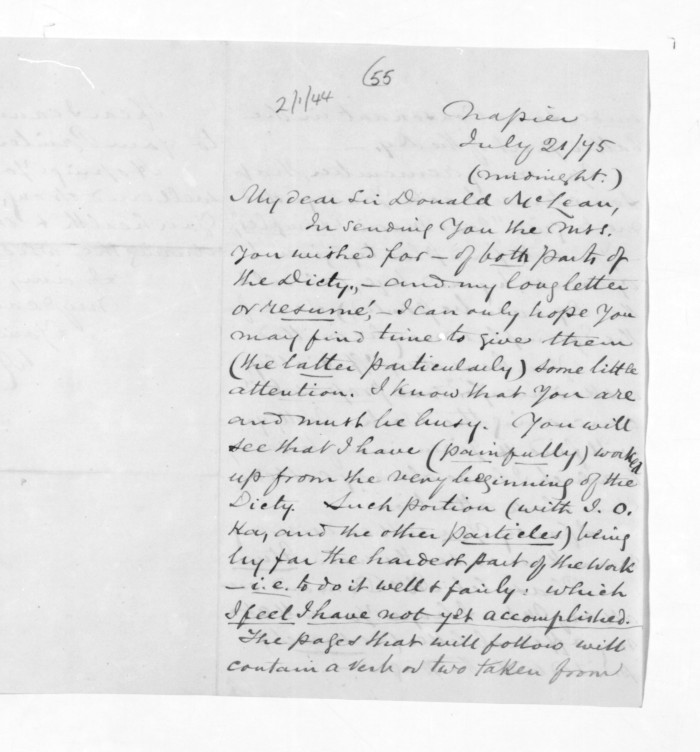 (55
2/1/44
Napier
July 21/75
(midnight.)
My dear Sir Donald McLean,
In sending You the Mss.
You wished for – of both parts of
the Dicty., – and my long letter
or resumé, – I can only hope You
may find time to give them
(the latter particularly) some little
attention. I know that You are
and must be busy. You will
see that I have (painfully) worked
up from the very beginning of the
Dicty. Such portion (with I. O.
Ka, and the other particles) being
by far the hardest part of the work
– i.e. to do it well & fairly: which
I feel I have not yet accomplished.
The pages that will follow will
contain a verb or two taken from